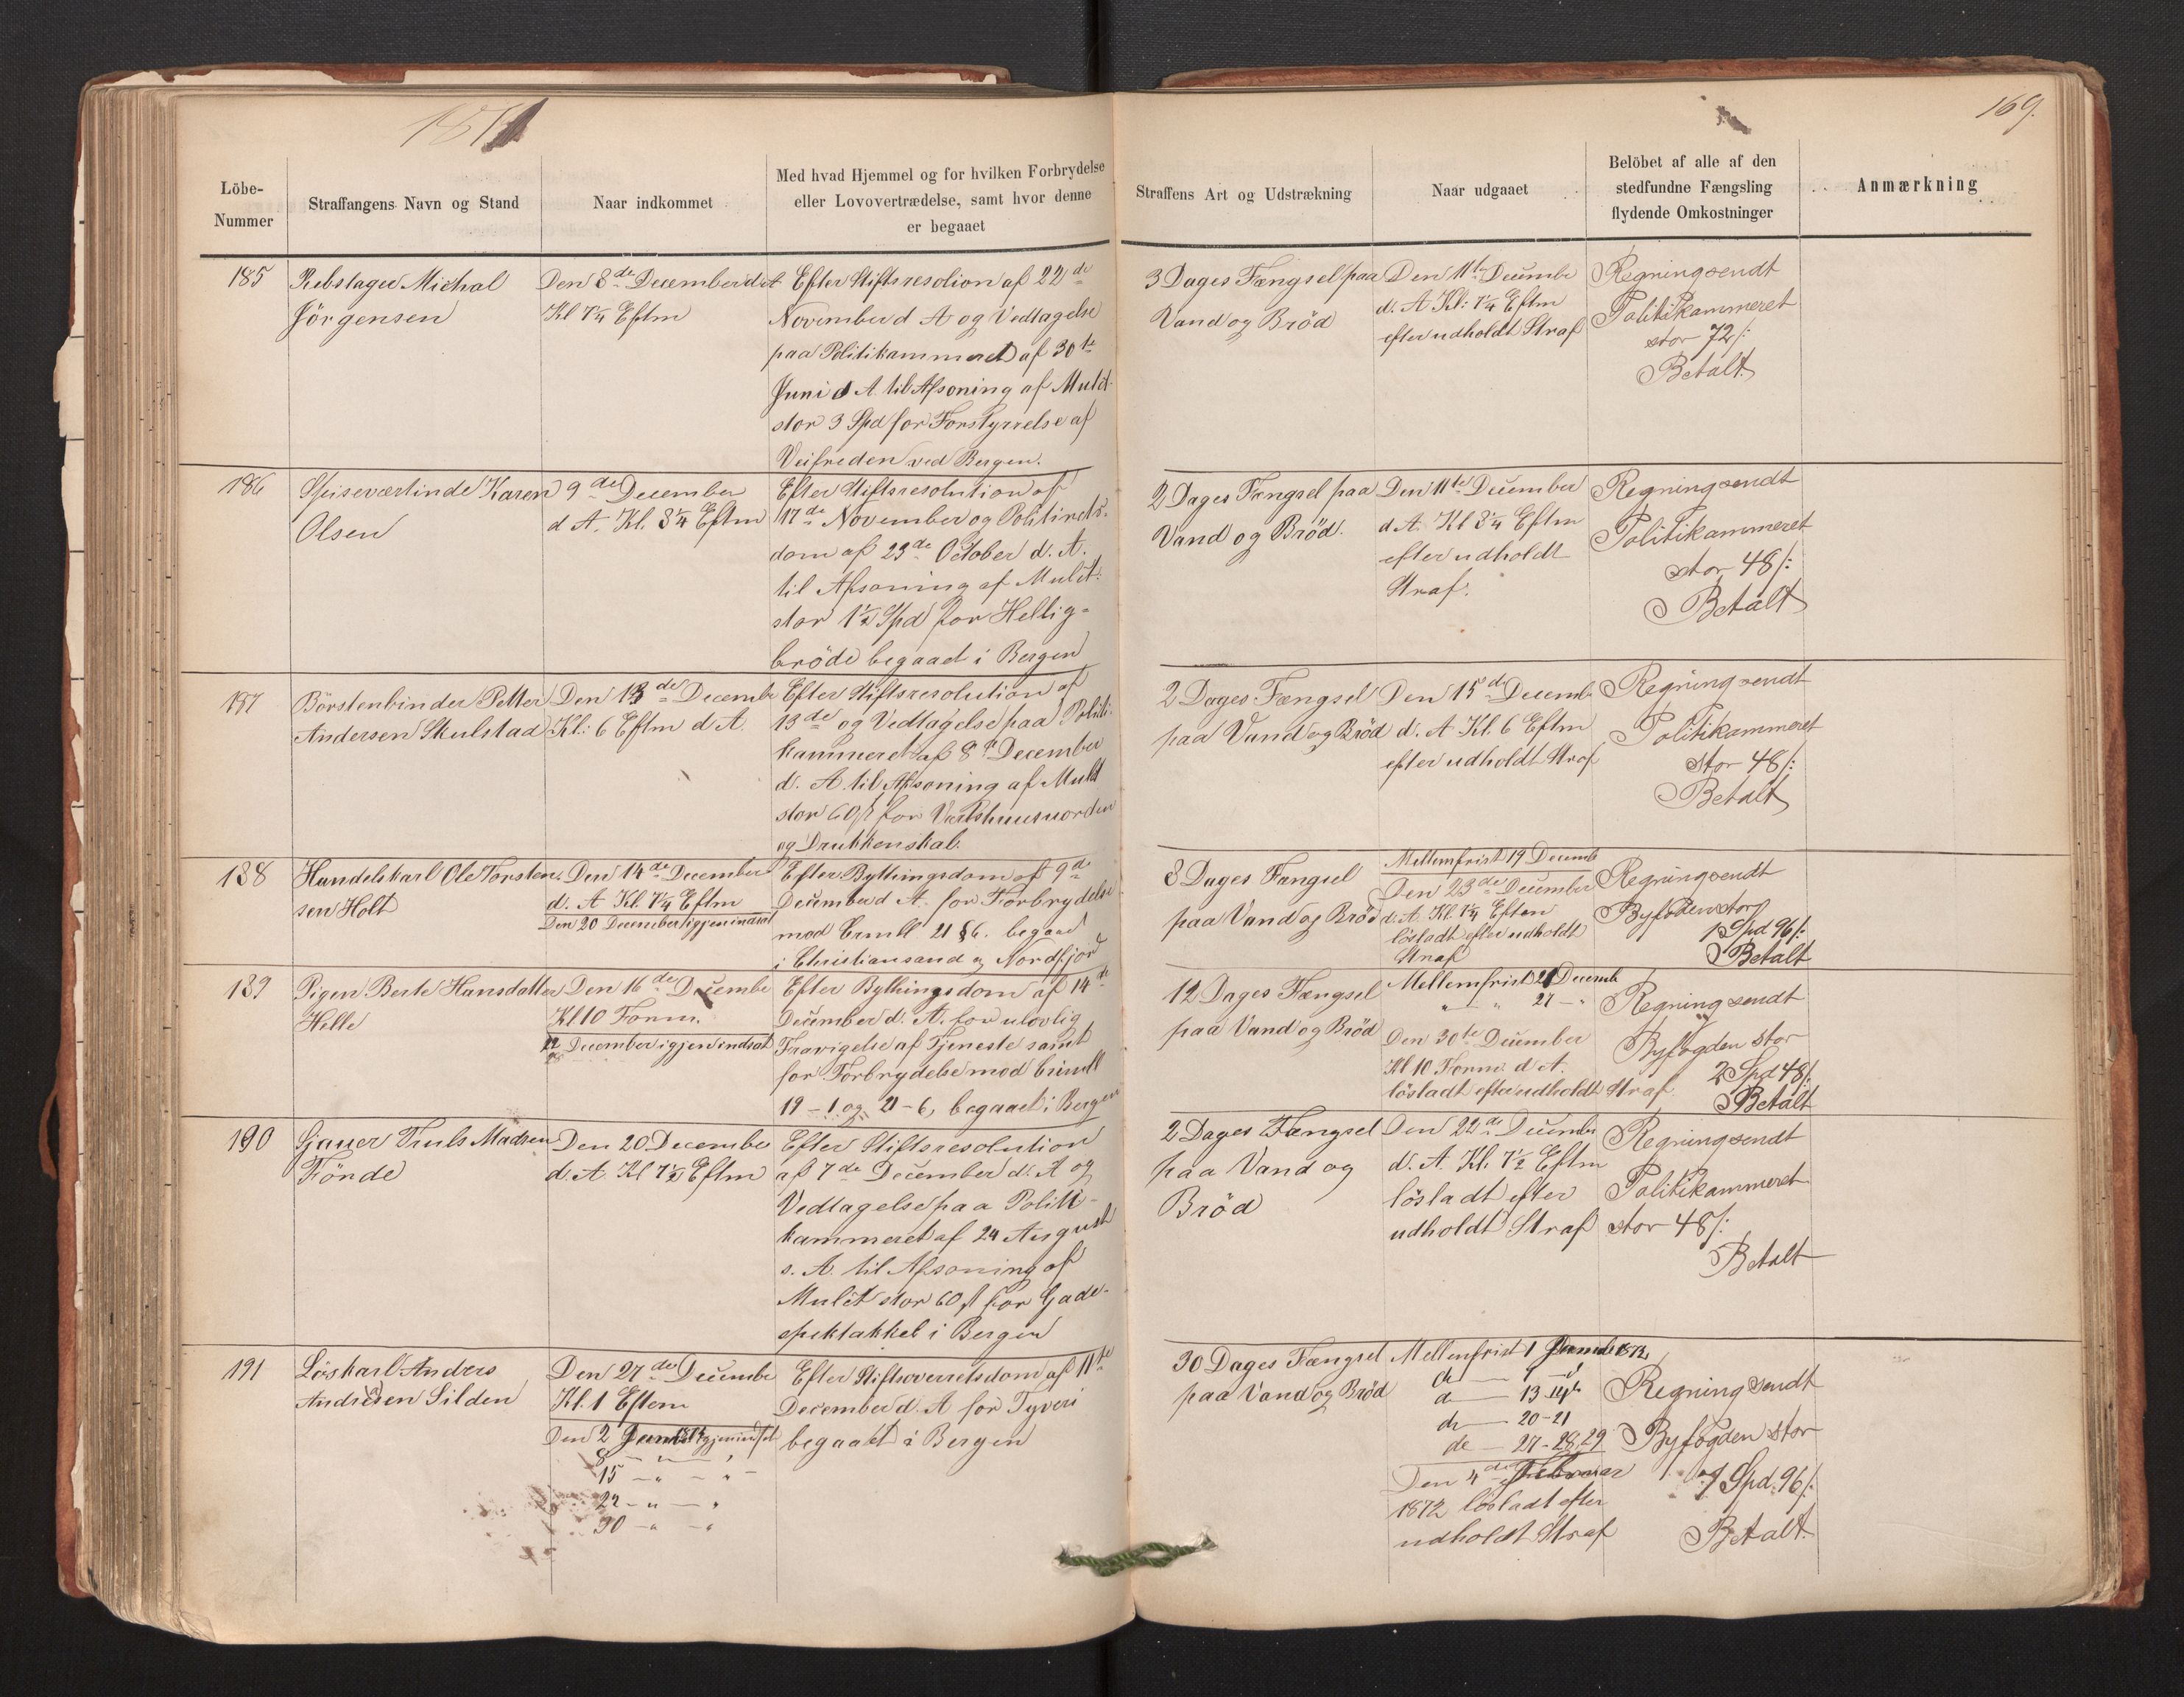 1871
169.
Löbe-
Nummer
Straffangens Navn og Stand
Naar indkommet
Med hvad Hjemmel og for hvilken Forbrydelse
eller Lovovertrædelse, samt hvor denne
er begaaet
Straffens Art og Udstrækning
Naar udgaaet
Belöbet af alle af den
stedfundne Fængsling
flydende Omkostninger
Anmærkning
185
Rebslager Michal
Jörgensen
Den 8de December d A
Kl 7¼ Eftm
Efter Stiftsresolion af 22de
November d A og Vedtagelse
paa Politikammeret af 30te
Juni d A til Afsoning af Mulct
stor 3 Spd for Forstyrrelse af
Veifreden ved Bergen.
3 Dages Fængsel paa
Vand og Bröd
Den 11te Decembr
d. A Kl: 7¼ Eftm
efter udholdt Straf
Regning sendt
Politikammeret
stor 72 /:
Betalt
186
Spiseværtinde Karen
Olsen
9de December
d A. Kl. 3¼ Eftm
Efter Stiftsresolution af
17de November og Politirets-
dom af 23de October d. A.
til Afsoning af Mulct:
stor 1½ Spd for Hellig-
bröde begaaet i Bergen
2 Dages Fængsel paa
Vand og Bröd.
Den 11te December
d A Kl 3¼ Eftm
efter udholdt
Straf.
Regning sendt
Politikammeret
stor 48 /:
Betalt
187
Börstenbinder Petter
Andersen Skulstad
Den 13de Decembr
Kl: 6 Eftm d A
Efter Stiftsresolution af
13de og Vedtagelse paa Politi-
kammeret af 8de December
d. A til Afsoning af Mulct
stor 60 ß for Værtshuusuorden
og Drukkenskab.
2 Dages Fængsel
paa Vand og Bröd
Den 15de Decemb
d. A Kl. 6 Eftm
efter udholdt Straf
Regning sendt
Politikammeret
stor 48 /:
Betalt
188
Handelskarl Ole Torsten-
sen Holt
Den 14de December
d. A Kl. 7¼ Eftm
Den 20 December igjen indsat
Efter Bythingsdom af 9de
December d A. for Forbrydelse
mod Crmll 21 § 6. begaaet
i Christiansand og Nordfjord
8 Dages Fængsel
paa Vand og Bröd
Mellemfrist 19 Decemb
Den 23de December
d. A. Kl. 7¼ Eftm
lösladt efter udholdt
Straf
Regning sendt
Byfogden stor
1 Spd 96 /:
Betalt
189
Pigen Berte Hansdatter
Hille
Den 16de Decembr
Kl 10 Form.
22 December igjen indsat
28
Efter Bythingsdom af 14de
December d. A. for ulovlig
Fravigelse af Tjeneste samt
for Forbrydelse mod Crimll
19 – 1 og 21 – 6, begaaet i Bergen
12 Dages Fængsel
paa Vand og Bröd
Mellemfrist 21 Decemb
" " 27 – "
Den 30te December
Kl 10 Form. d A.
lösladt efter udholdt Straf
Regning sendt
Byfogden stor
2 Spd 48 /:
Betalt
190
Gjauer Truls Madsen
Förde
Den 20 December
d. A Kl 7½ Eftm
Efter Stiftsresolution
af 7de December d. A og
Vedtagelse paa Politi-
kammeret af 24 August
s. A. til Afsoning af
Mulct stor 60 ß for Gade-
spektakkel i Bergen
2 Dages Fængsel
paa Vand og
Bröd
Den 22de Decembr
d. A. Kl. 7½ Eftm
lösladt efter
udholdt Straf
Regning sendt
Politikammeret
stor 48 /:
Betalt
191
Löskarl Anders
Andersen Silden
Den 27de Decembr
Kl. 1 Eftem
Den 2 Januar 1872 igjen indsat
8 – " – "
15 – " – " –
22 – " – "
30 – " – "
Efter Stiftsoverretsdom af 11te
December d. A for Tyveri
begaaet i Bergen
30 Dages Fængsel
paa Vand og Bröd
Mellemfrist 1 Januar 1872
do — 7 – d
do — 13 – 14de
do — 20 – 21
do — 27 – 28, 29
Den 4de Februar
1872 lösladt efter
udholdt Straf
Regning sendt
Byfogden stor
7 Spd. 96 /:
Betalt.